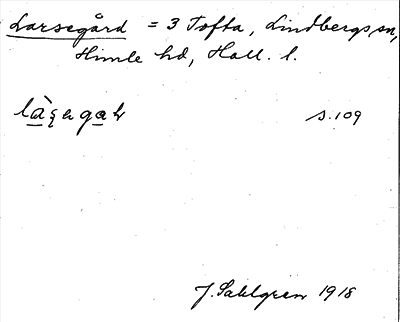 Larsegård = 3 Tofta, Lindbergs sn,
Himle hd, Hall. l.
s. 109
J. Sahlgren 1918